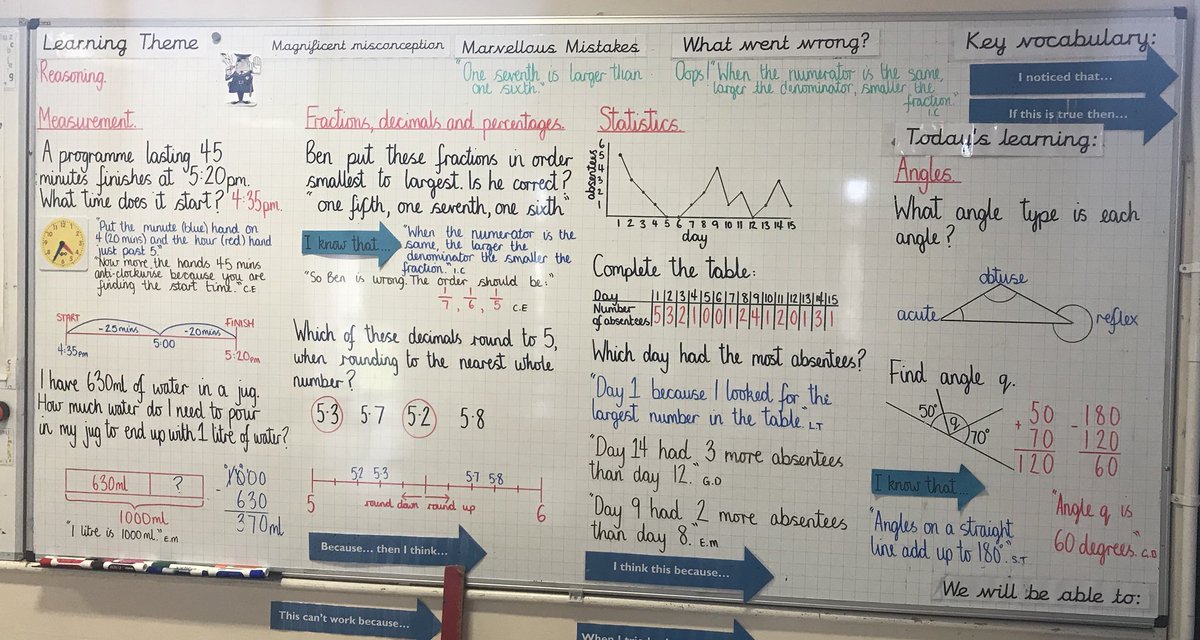 Learning Theme
Reasoning.
Magnificent misconception
Marvellous Mistakes
"One seventh is larger than
one sixth."
What went wrong?
Oops! "When the numerator is the same,
larger the denominator, smaller the
fraction."
I.C
Key vocabulary:
I noticed that...
If this is true then...
Measurement.
A programme lasting 45
minutes finishes at 5:20pm.
What time does it start? 4:35pm.
"Put the minute (blue) hand on
4 (20 mins) and the hour (red) hand
just past 5."
"Now move the hands 45 mins
anti-clockwise because you are
finding the start time." C.E
START
FINISH
-25mins
-20mins
5:00
4:35pm
5:20pm
I have 630ml of water in a jug.
How much water do I need to pour
in my jug to end up with 1 litre of water?
630ml
?
1000ml
"1 litre is 1000ml." E.M
1000
- 630
370ml
Fractions, decimals and percentages.
Ben put these fractions in order
smallest to largest. Is he correct?
"one fifth, one seventh, one sixth"
I know that...
"When the numerator is the
same, the larger the
denominator the smaller the
fraction." I.C
"So Ben is wrong. The order should be:"
1/7, 1/6, 1/5
C.E
Which of these decimals round to 5,
when rounding to the nearest whole
number?
5·3 5·7 5·2 5·8
5·2 5·3 5·7 5·8
round down round up
5 6
Because... then I think...
This can't work because...
Statistics.
absentees
6
5
4
3
2
1
1 2 3 4 5 6 7 8 9 10 11 12 13 14 15
day
Complete the table:
Day 1 2 3 4 5 6 7 8 9 10 11 12 13 14 15
Number
of absentees 5 3 2 1 0 0 1 2 4 1 2 0 1 3 1
Which day had the most absentees?
"Day 1 because I looked for the
largest number in the table." L.T
"Day 14 had 3 more absentees
than day 12." G.D
"Day 9 had 2 more absentees
than day 8." E.M
I think this because...
Today's learning:
Angles.
What angle type is each
angle?
obtuse
acute
reflex
Find angle q.
50°
q
70°
50
+ 70
120
180
- 120
60
I know that...
"Angles on a straight
line add up to 180°." S.T
"Angle q is
60 degrees." G.D
We will be able to: